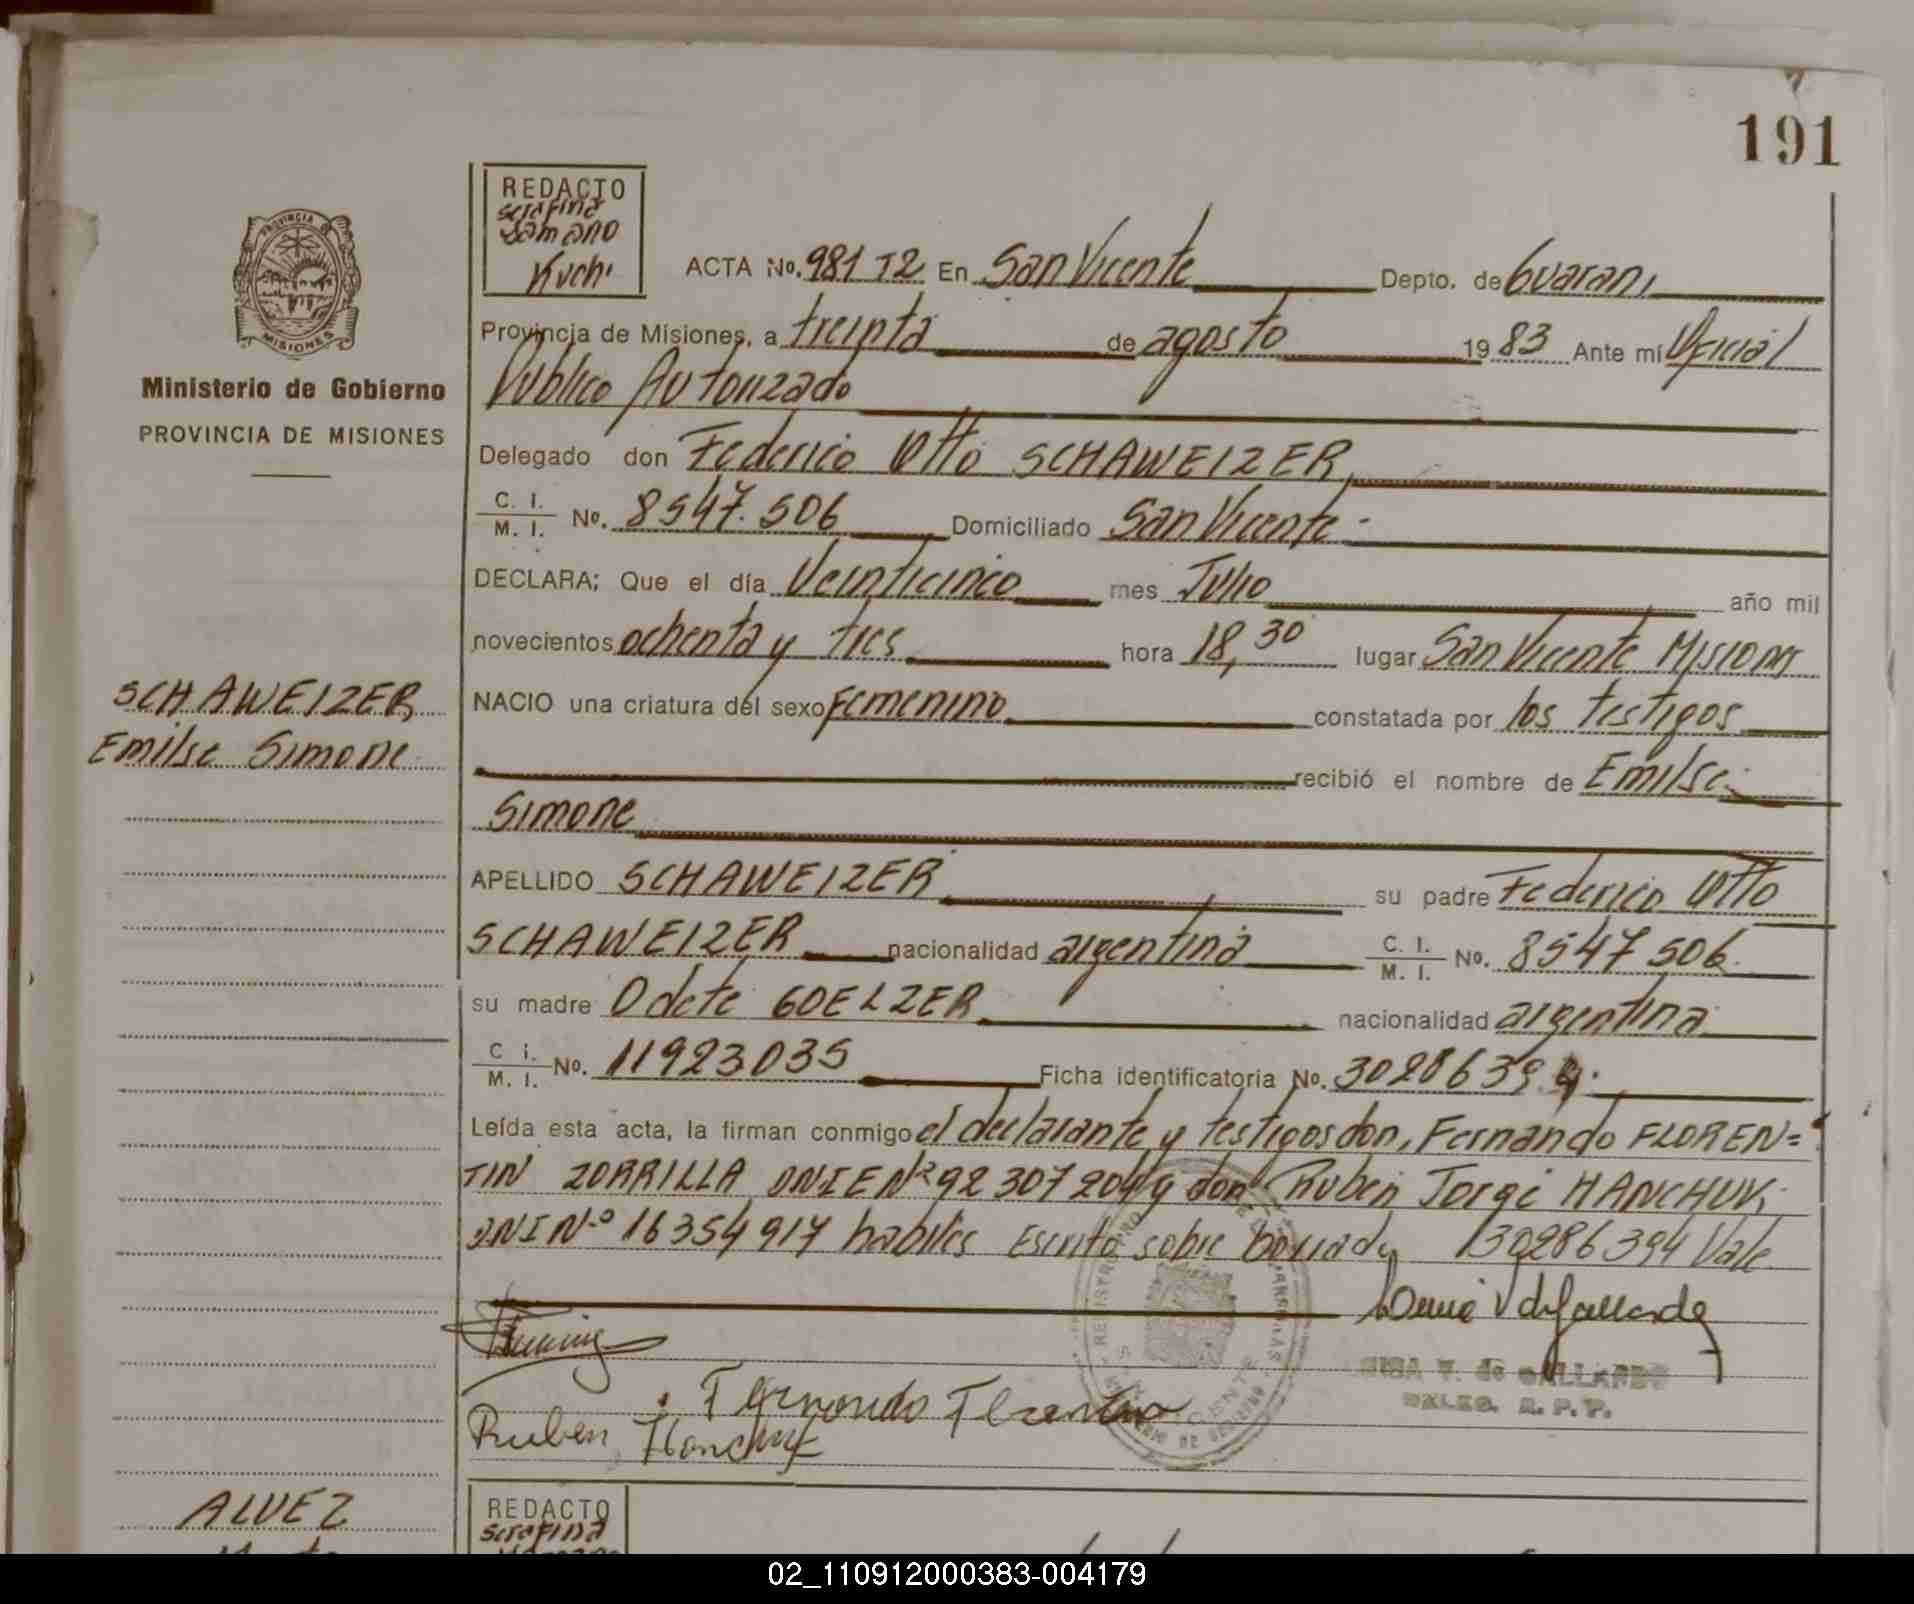 191
REDACTO
Serafina
Samano
Kuchi
PROVINCIA
MISIONES
Ministerio de Gobierno
PROVINCIA DE MISIONES
ACTA No. 981 T2 En San Vicente Depto. de Guarani
Provincia de Misiones, a treinta de agosto 1983 Ante mí Oficial
Publico Autorizado
Delegado don Federico Otto SCHAWEIZER
C. I. / M. I. No. 8547.506 Domiciliado San Vicente.-
DECLARA: Que el día Veinticinco mes Julio año mil
novecientos ochenta y tres hora 18,30 lugar San Vicente Misiones
SCHAWEIZER
Emilse Simone
NACIO una criatura del sexo Femenino constatada por los testigos
recibió el nombre de Emilse
Simone
APELLIDO SCHAWEIZER su padre Federico Otto
SCHAWEIZER nacionalidad argentina C. I. / M. I. No. 8547506.
su madre Odete GOELZER nacionalidad argentina
C i. / M. I. No. 11923035 Ficha identificatoria No. 30286394.
Leída esta acta, la firman conmigo el declarante y testigos don, Fernando FLOREN=
TIN ZORRILLA DNIE Nº 92 307 204 y don Ruben Jorge HANCHUK;
DNI N.º 16354917 habiles Escrito sobre borrado 30286394 Vale
Fernando Florentin
V. de GALLARDO
Ruben Hanchuk
ALVEZ
REDACTO
Serafina
02_110912000383-004179